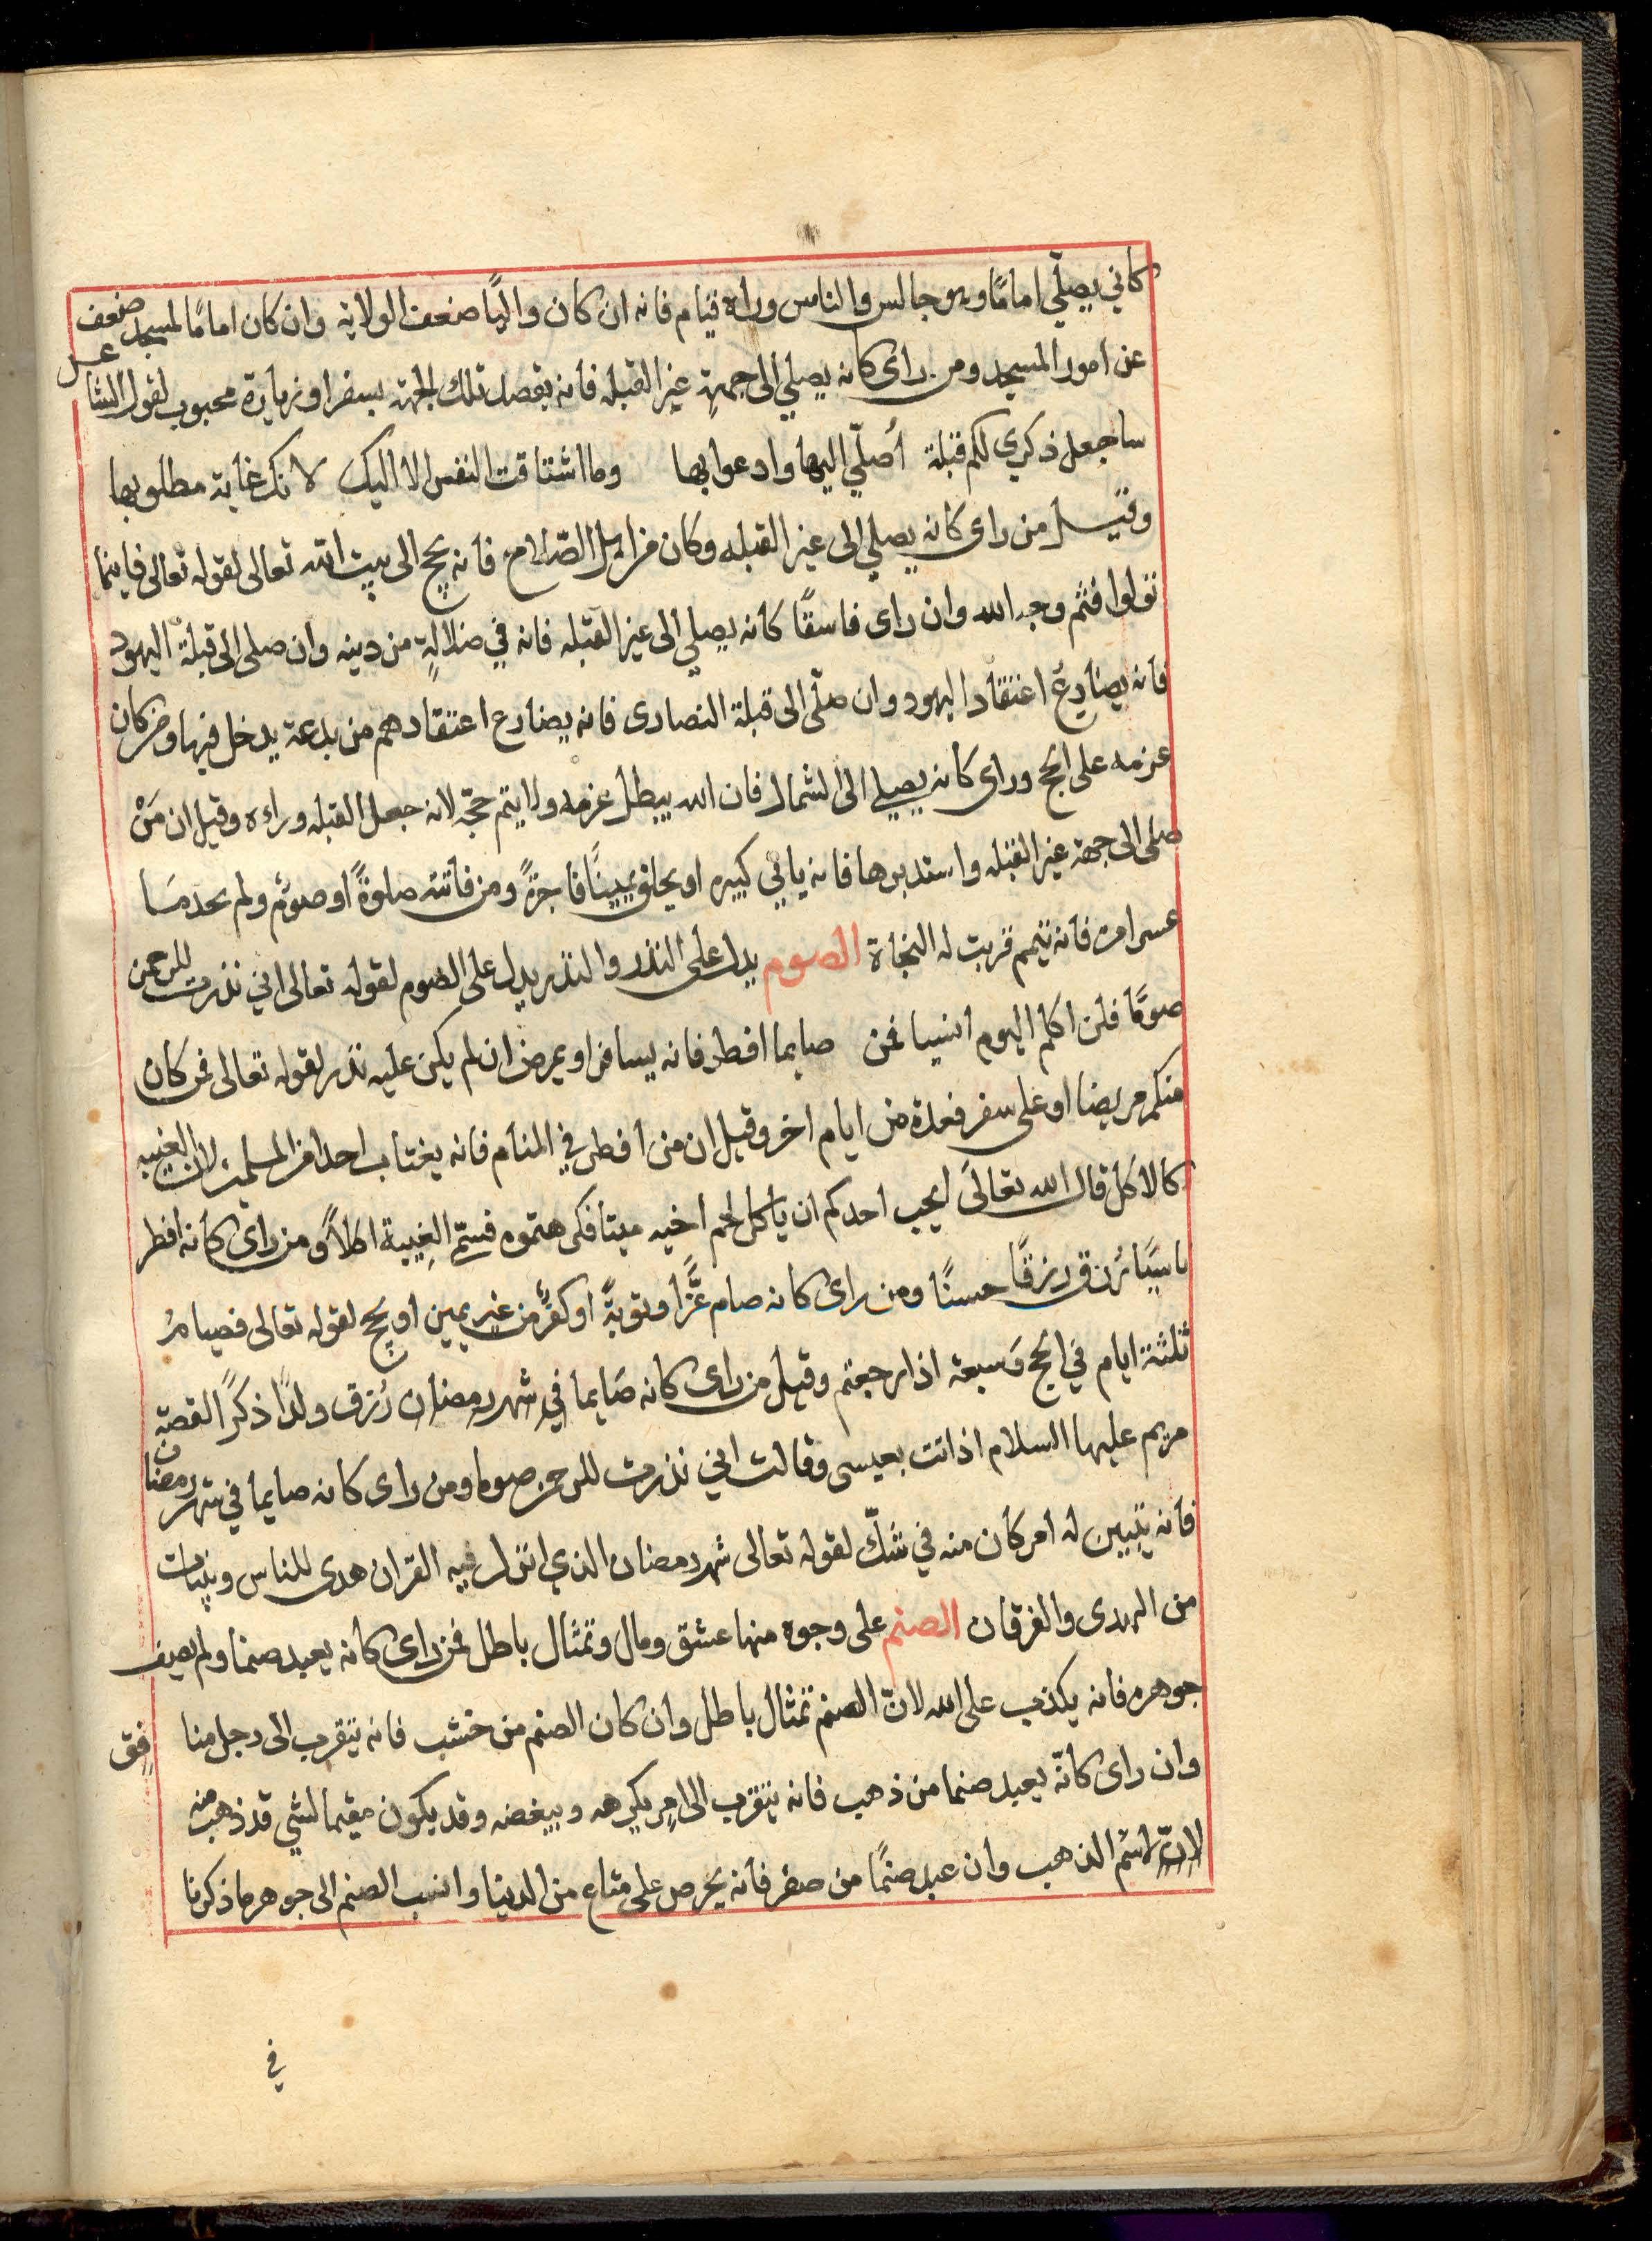 كاني يصلّي امامًا وهو جالس والناس وراه قيام فانه ان كان واليًا ضعف الولاية وان كان امامًا لمسجد ضعف
عن امور المسجد ومن راى كانه يصلي الى جهة غير القبله فانه يقصد تلك الجهة بسفر او زيارة محبوب لقول الشاعر
ساجعل ذكري لكم قبلة أصلّي اليها وادعوا بها وما اشتاقت النفس الا اليك لانك غاية مطلوبها
وقيل من راى كانه يصلي الى غير القبله وكان من اهل الصّلاح فانه يحج الى بيت الله تعالى لقوله تعالى فاينما
تولوا فثم وجه الله وان راى فاسقًا كانه يصلي الى غير القبله فانه في ضلالةٍ من دينه وان صلى الى قبلة اليهود
فانه يضارع اعتقاد اليهود وان صلّى الى قبلة النصارى فانه يضارع اعتقادهم من بدعة يدخل فيها ومن كان
عزمه على الحج وراى كانه يصلي الى الشمال فان الله يبطل عزمه ولا يتم حجّه لانه جعل القبله وراءه وقيل ان مَنْ
صلى الى جهة غير القبله واستدبرها فانه ياتي كبيره او يحلف يمينًا فاجرةً ومن فاتته صلوةً او صومٌ ولم يجد مَا
عسى امره فانه تيمم قربت له النجاة الصوم يدل على النذر والنذر يدل على الصوم لقوله تعالى اني نذرت للرحمن
صومًا فلن اكلم اليوم انسيا فمن صايما افطر فانه يسافر او يمرض ان لم يكن عليه نذر لقوله تعالى فمن كان
منكم مريضا او على سفر فعدة من ايام اخر وقيل ان من افطر في المنام فانه يغتاب احدا من المسلمين لان الغيبه
كالاكل قال الله تعالى ايحب احدكم ان ياكل لحم اخيه ميتا فكرهتموه فسمّى الغِيبة اكلاً ومن راى كانه افطر
ناسيًا رُزق رزقًا حسنًا ومن راى كانه صام عَزًّا وتوبةً او كفّر من غير يمين او يحج لقوله تعالى فصيامُ
ثلثة ايام في الحج وَسبعة اذا رجعتم وقيل من راى كانه صَايما في شهر رمضان رُزق ولدًا ذكرًا لقصّة
مريم عليها السلام اذ اتت بعيسى وقالت اني نذرت للرحمن صوما ومن راى كانه صايما في شهر رمضان
فانه يتبين له امر كان منه في شكّ لقوله تعالى شهر رمضان الذي انزل فيه القران هدى للناس وبينات
من الهدى والفرقان الصنم على وجوه منها عشق ومال وتمثال باطل فمن راى كانه يعبد صنما ولم يصف
جوهره فانه يكذب على الله لانّ الصنم تمثال باطل وان كان الصنم من خشب فانه يتقرب الى رجل منا فق
وان راى كانّه يعبد صنما من ذهب فانه يتقرب الى امر يكرهه ويبغضه وقد يكون مقيما لشي قد ذهب منه
لانّ لاسْم الذهب وان عبد صنمًا من صفر فانه يحرص على متاع من الدينا وانسب الصنم الى جوهر ما ذكرنا
في